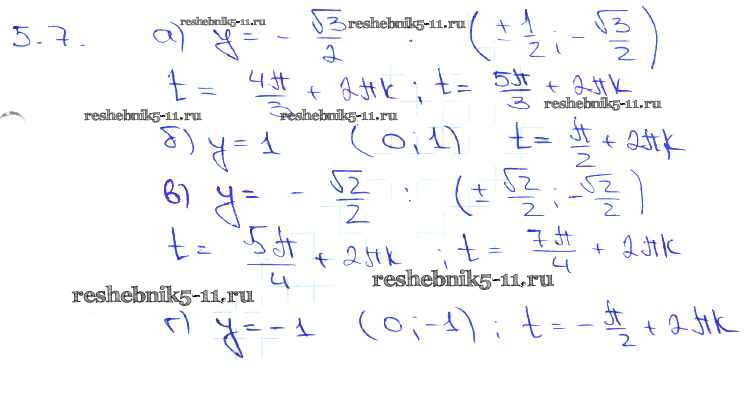 reshebnik5-11.ru reshebnik5-11.ru
5.7. а) y = - √3/2 : (± 1/2 ; - √3/2)
t = 4π/3 + 2πk ; t = 5π/3 + 2πk
reshebnik5-11.ru reshebnik5-11.ru reshebnik5-11.ru
б) y = 1 (0 ; 1) t = π/2 + 2πk
в) y = - √2/2 : (± √2/2 ; - √2/2)
t = 5π/4 + 2πk ; t = 7π/4 + 2πk
reshebnik5-11.ru reshebnik5-11.ru
г) y = - 1 (0 ; -1) ; t = - π/2 + 2πk